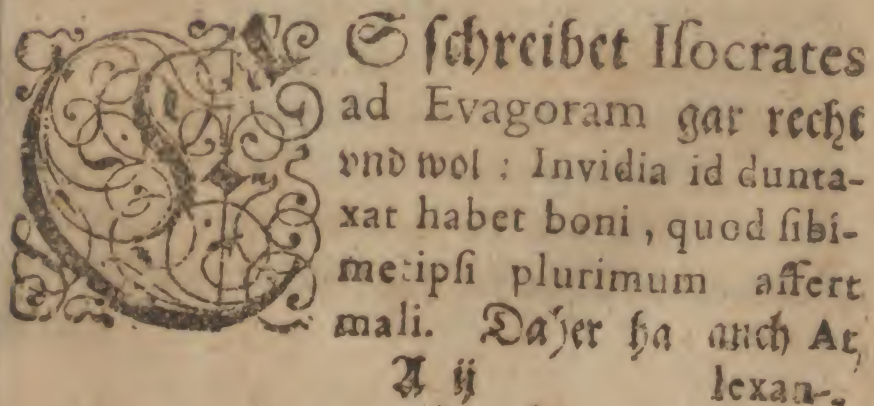 ES ſchreibet Iſocrates
ad Evagoram gar recht
vnd wol : Invidia id dunta-
xat habet boni, quod ſibi-
metipſi plurimum affert
mali. Daher ha auch A-
A ij lexan-